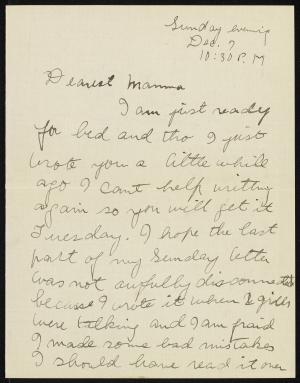 Sunday evening
Dec. 7
10:30 P.M
Dearest Mamma
I am just ready
for bed and tho I just
wrote you a little while
ago I cant help writing
again so you will get it
Tuesday. I hope the last
part of my Sunday letter
was not awfully disconnected
because I wrote it when 2 girls
were talking and I am fraid
I made some bad mistakes
I should have read it over